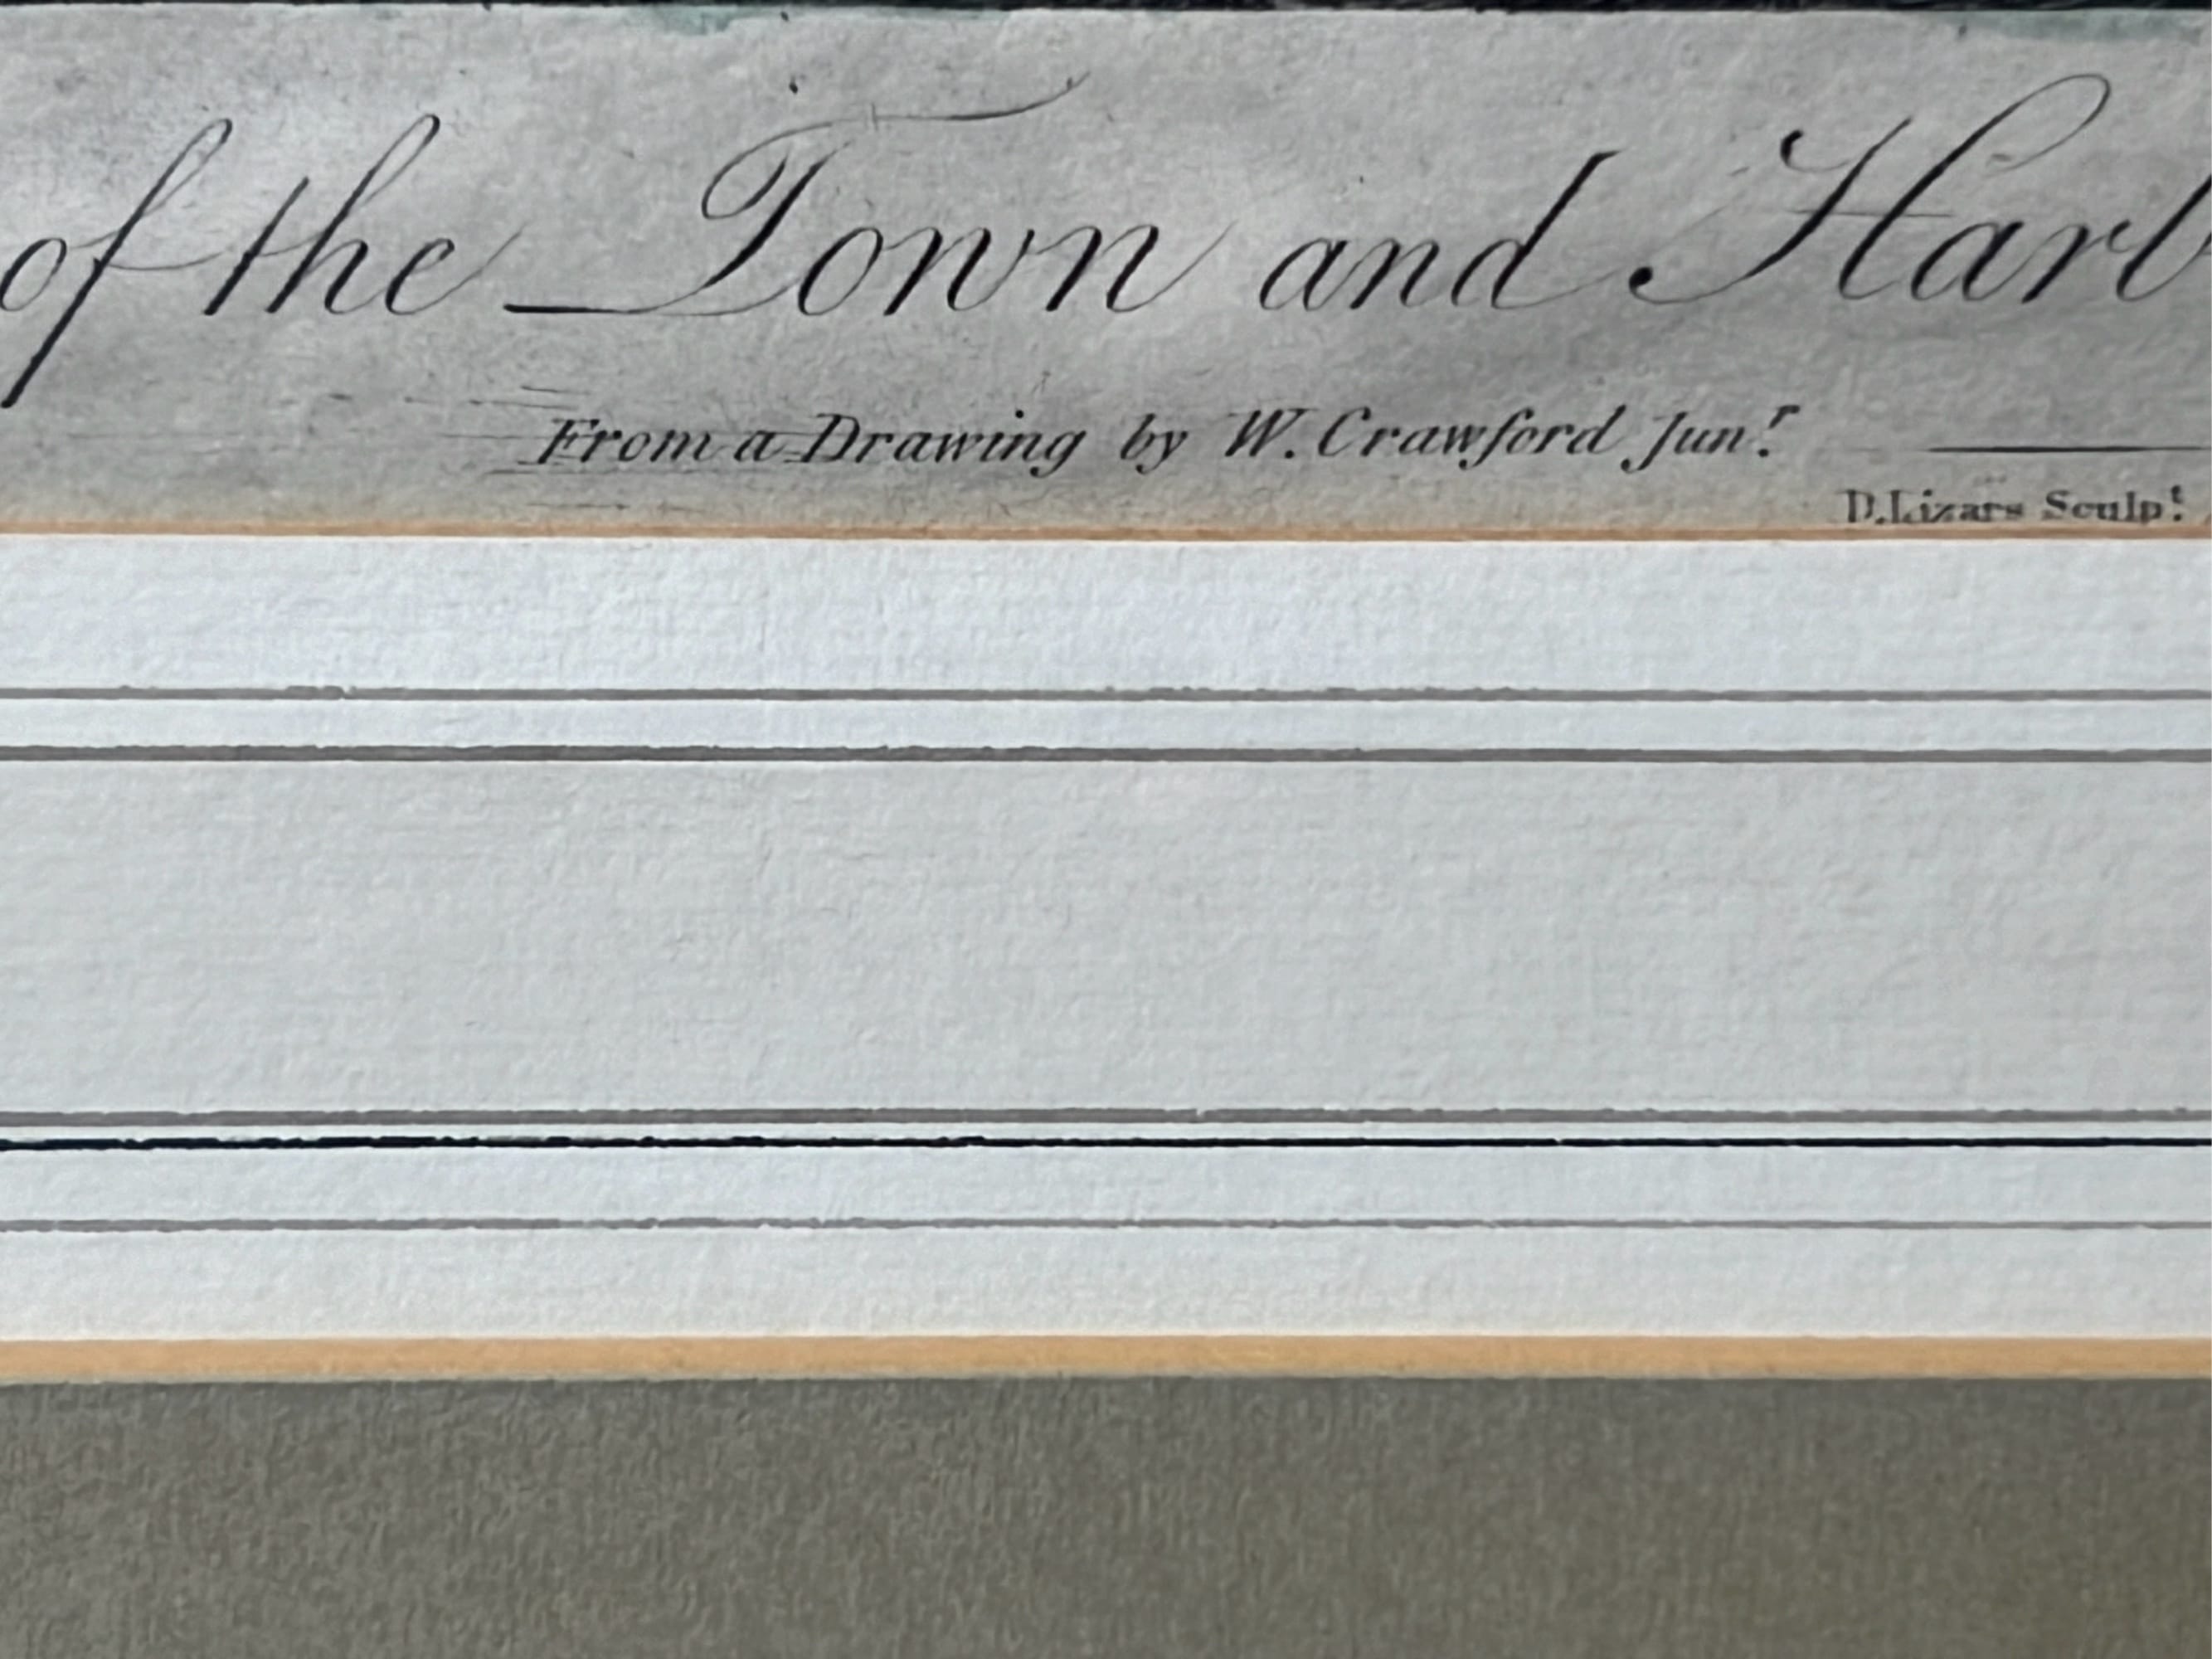 of the Town and Harb
From a Drawing by W. Crawford Junr
D. Lizars Sculpt